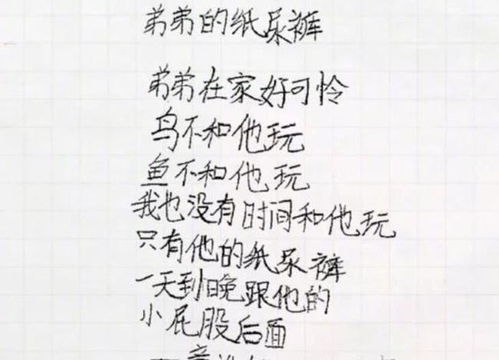 弟弟的纸尿裤
弟弟在家好可怜
鸟不和他玩
鱼不和他玩
我也没有时间和他玩
只有他的纸尿裤
一天到晚跟他的
小屁股后面